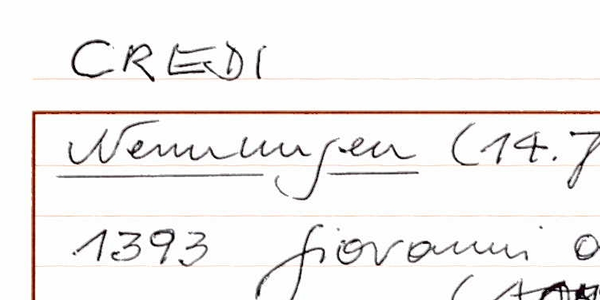 CREDI
Nennungen (14.7
1393 Giovanni